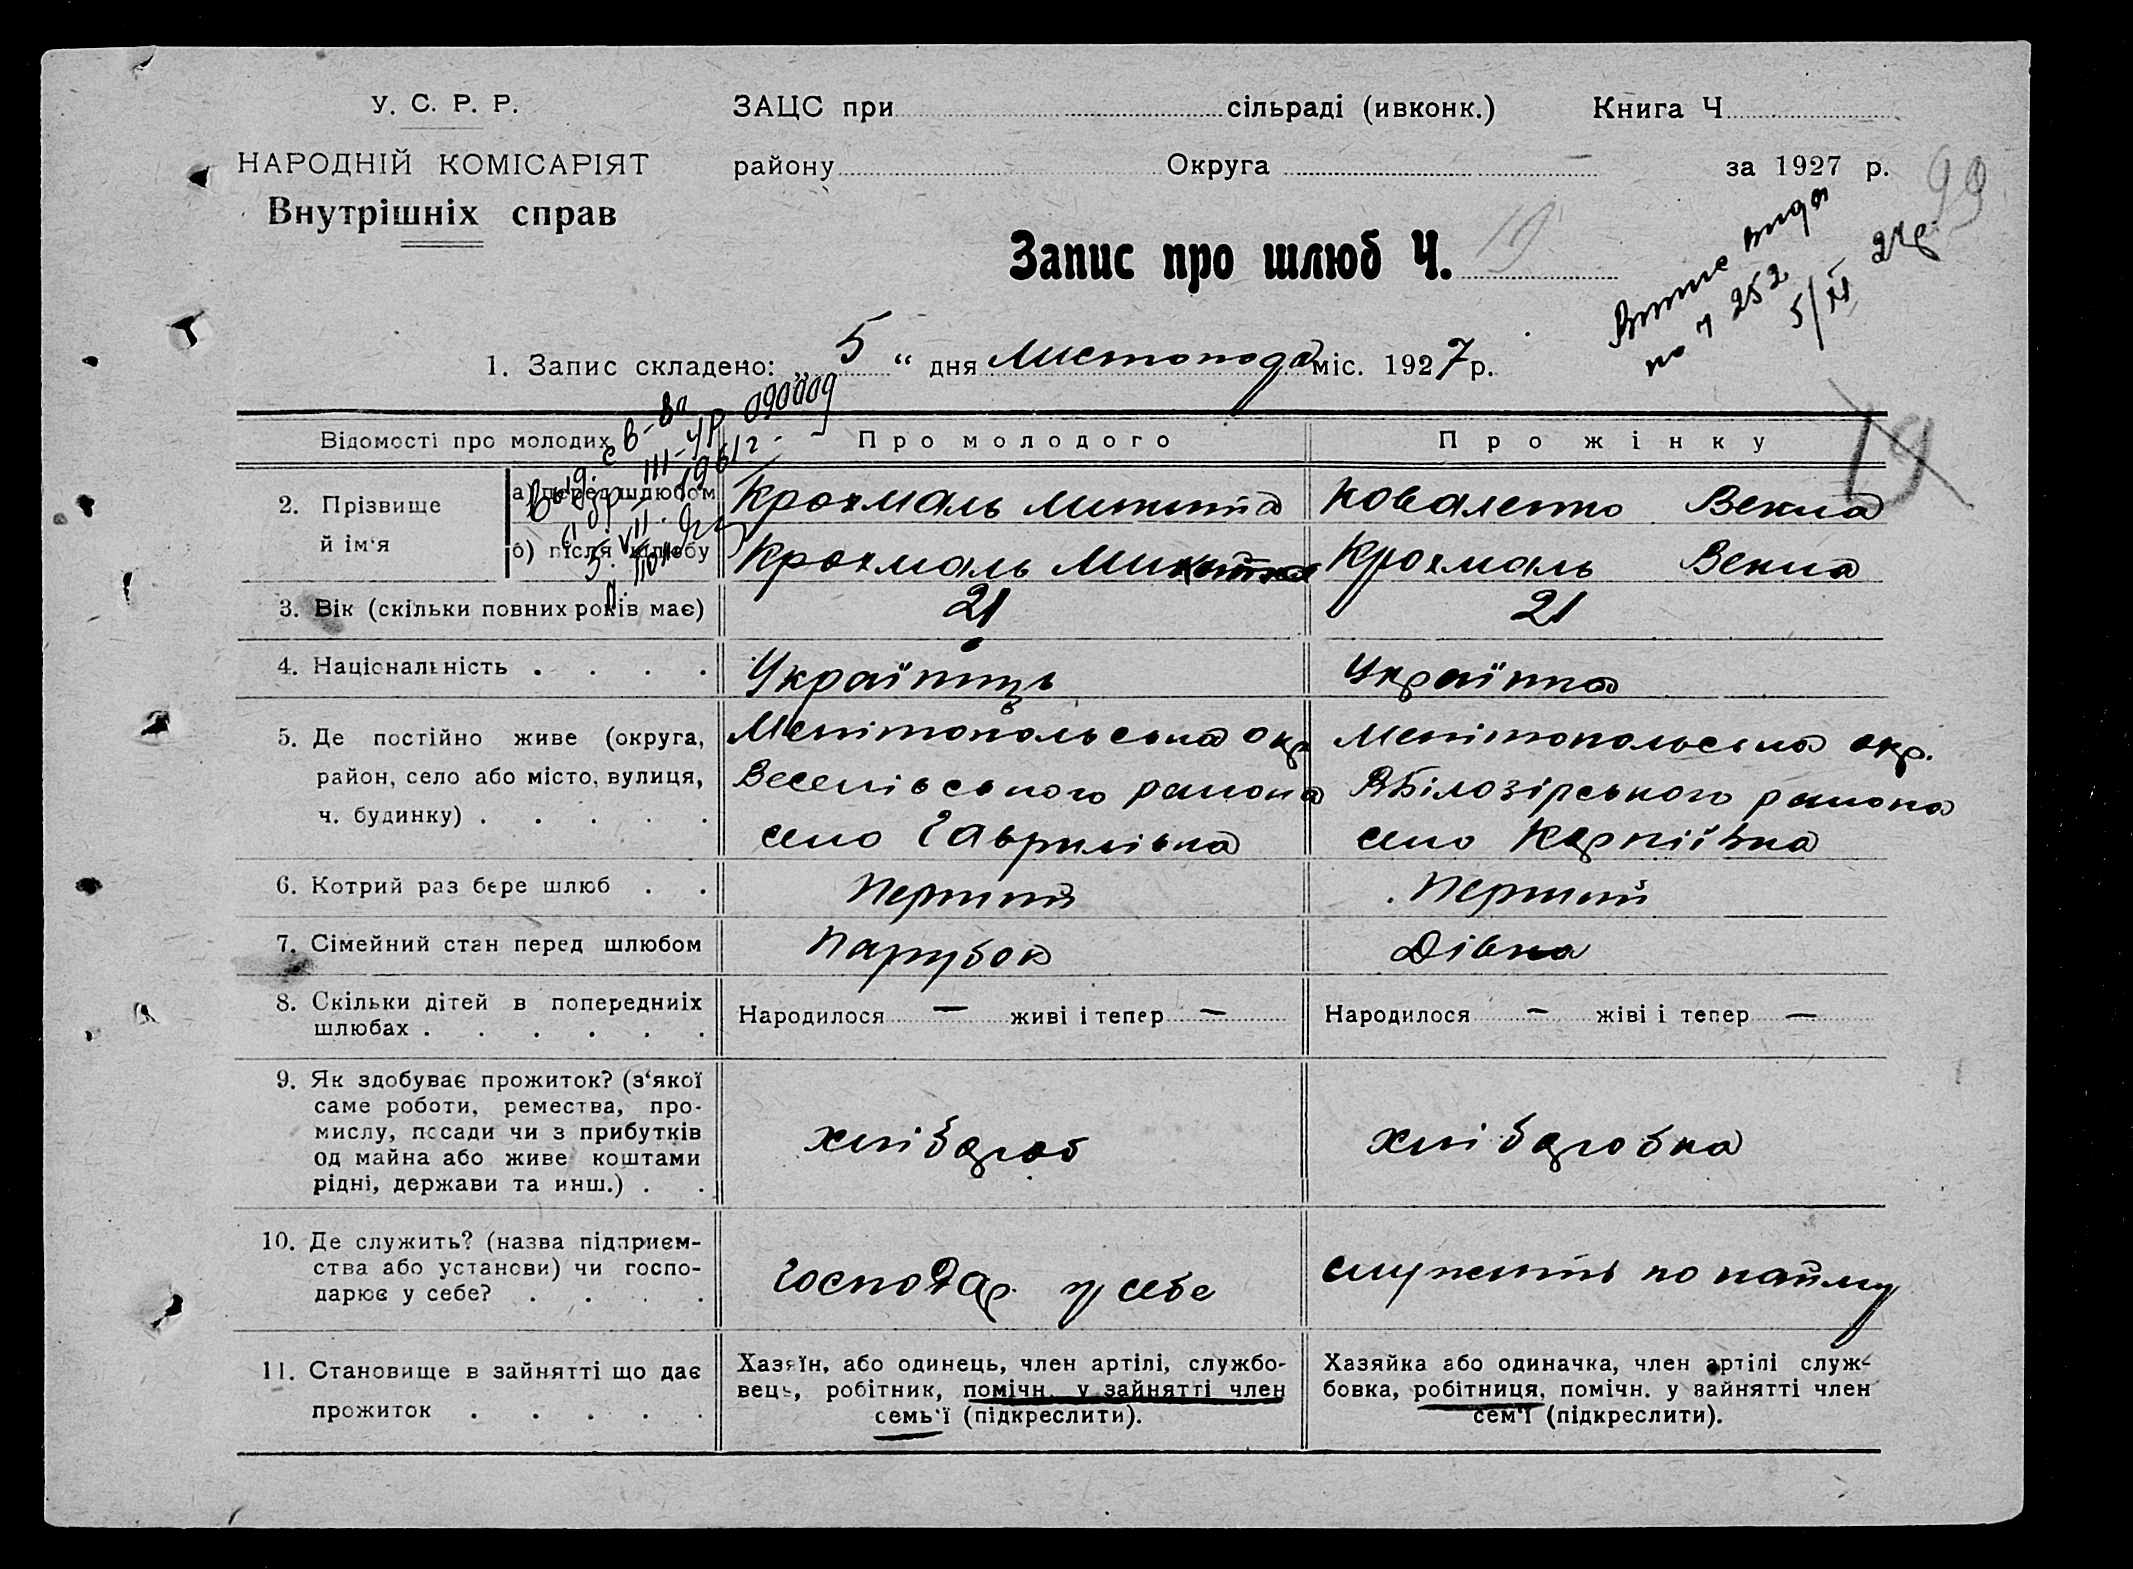 У. С. Р. Р.
НАРОДНІЙ КОМІСАРІЯТ
Внутрішніх справ
ЗАЦС при сільраді (ивконк.) Книга Ч
району Округа — за 1927 р.
99
Запис про шлюб Ч. 19
Витяг видан
по ч 252
5/XI 27р.
1. Запис складено: „ 5 “ дня Листопода міс. 1927 р.
19
Відомості про молодих
Про молодого
Про жінку
2. Прізвище й ім‘я
а) перед шлюбом
Крохмаль Микита
Коваленко Векла
б) після шлюбу
Крохмаль Микита
Крохмаль Векла
Выд. с в-ва
III-УР 090009
5. VII. 1961г.
3. Вік (скільки повних років має)
21
21
4. Національність . . . .
Українць
Українка
5. Де постійно живе (округа,
район, село або місто, вулиця,
ч. будинку) . . . . .
Мелітопольська окр
Веселівського района
село Гаврилівка
Мелітопольська окр.
Білозірського района
село Карпіївка
6. Котрий раз бере шлюб . .
Перший
Перший
7. Сімейний стан перед шлюбом
Парубок
Дівка
8. Скільки дітей в попередниіх
шлюбах . . . . . .
Народилося — живі і тепер —
Народилося — жіві і тепер —
9. Як здобуває прожиток? (з‘якої
саме роботи, ремества, про-
мислу, посади чи з прибутків
од майна або живе коштами
рідні, держави та инш.) . .
хлібороб
хліборобка
10. Де служить? (назва підприєм-
ства або установи) чи госпо-
дарює у себе? . . . .
Господар у себе
служить по найму
11. Становище в зайнятті що дає
прожиток . . . . .
Хазяїн, або одинець, член артілі, службо-
вець, робітник, помічн. у зайнятті член
семь‘ї (підкреслити).
Хазяйка або одиначка, член артілі служ-
бовка, робітниця, помічн. у зайнятті член
сем‘ї (підкреслити).